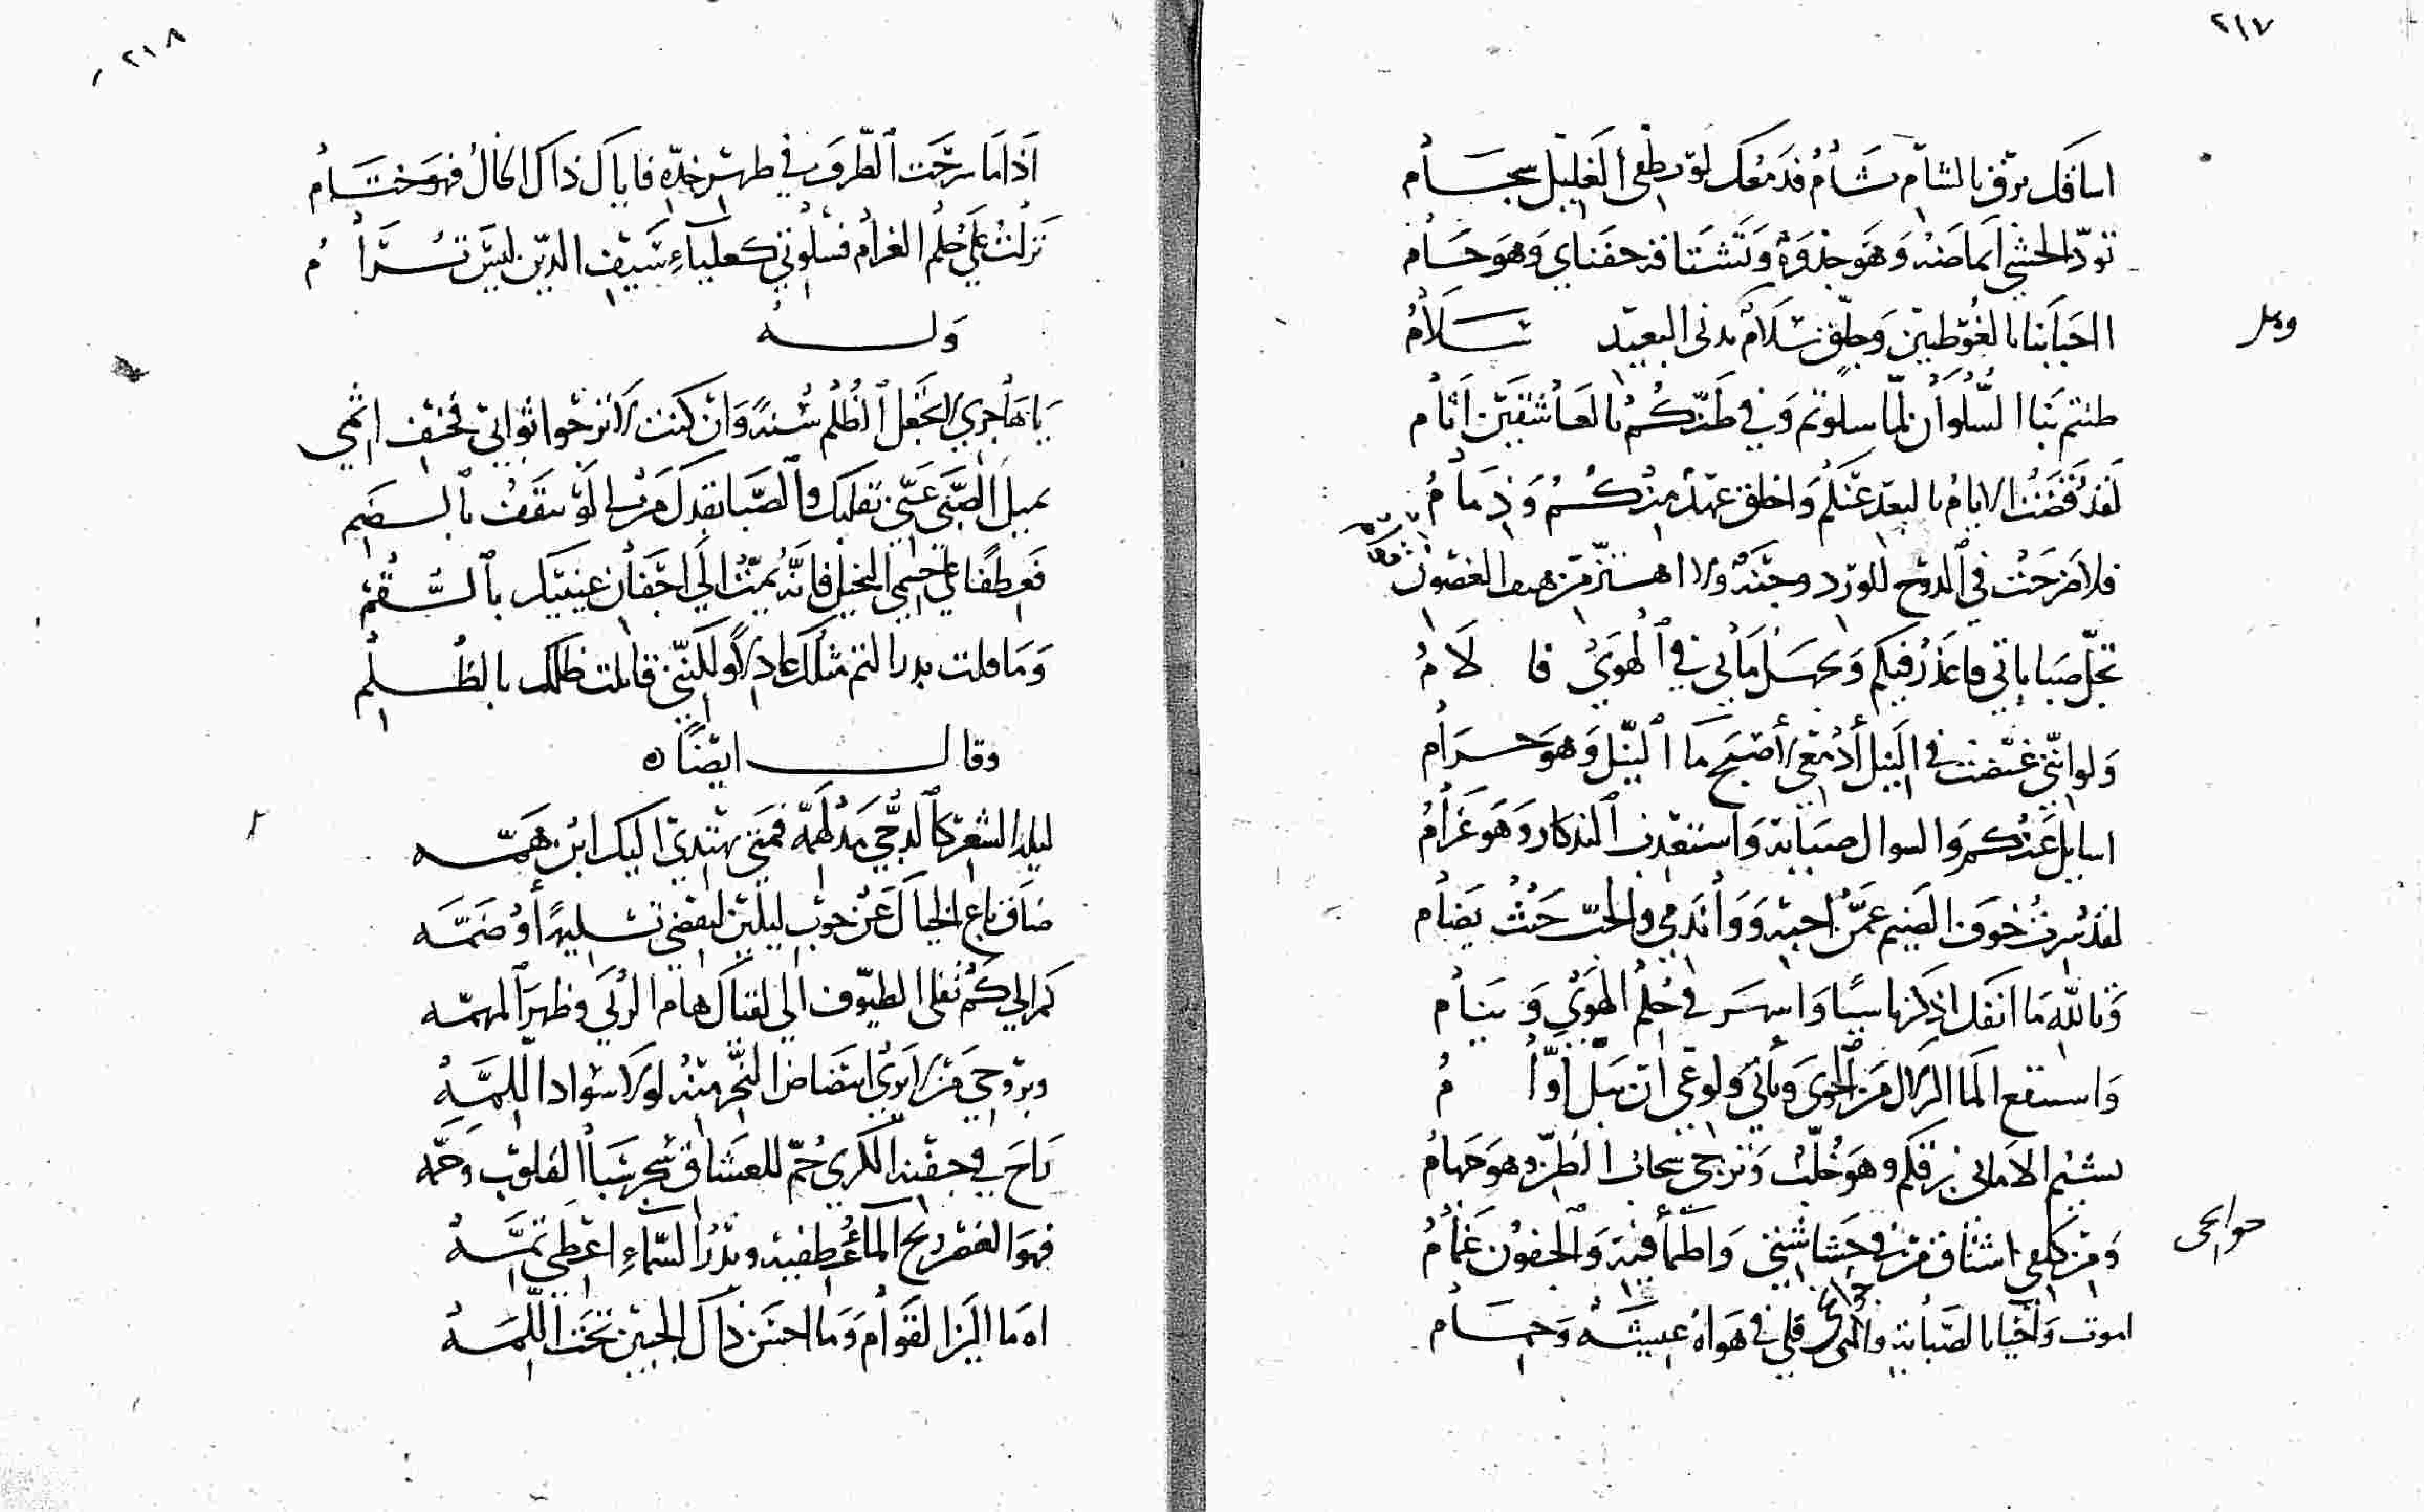 ٢١٧
اساقك برق بالشام شام فدمعك لو يطفي الغليل سجام
تود الحشي ايماضه وهو جذوة وتشتاقه جفناي وهو حسام
احبابنا بالغوطتين وجلق سلام يدني البعيد سلام
ظننتم بنا السلوان لما سلوتم وفي ظنكم بالعاشقين اثام
لقد قضت الايام بالبعد عنكم واخلق عهد منكم وذمام
فلا ضرجت في الدوح للورد وجنة ولا اهتز من هيف الغصون
تجل صباباتي فاعذر فيكم ويجهل ما بي في الهوي فالام
ولو انني غيضت في النيل أدمعي لأصبح ما النيل وهو حرام
اسايل عنكم والسوال صبابة واستعذب التذكار وهو غرام
لقد سرت خوف الضيم عمن احبه ووا ندمي والحب حيث يضام
وتالله ما انفك اذكر ناسيا واسهر في حكم الهوي وينام
واستنقع الما الزلال من الجوي ويأبي ولوعي ان يبل أوام
يشيم الاماني برقكم وهو خلب وترجي سحاب الظن وهو جهام
ومن كلفي اشتاق من في حشاشتي واظمأ فيه والجفون غمام
حوانحي
اموت وأحيا بالصبابة والمني فلي في هواه عيشة وحمام
٢١٨
اذا ما سرحت الطرف في طرس خده فاياك ذاك الخال فهو ختام
نزلت علي حكم الغرام فسلوتي كعلياء سيف الدين ليس ترام
وله
يا هاجري لا تجعل الظلم سنة وان كنت لا ترجوا ثوابي فخف اثمي
يميل الصبي عني بقلبك والصبا بقدك مرا لو يثقف بالضم
فعطفا علي جسمي النحيل فانه يمت الي اجفان عينيك بالسقم
وما قلت بدر التم مثلك عادلا ولكنني قابلت ظلمك بالظلم
وقال ايضا ه
ليلة الشعر كالدجي مدلهمة فمتي يهتدي اليك ابن همه
ضاق باع الخيال عن جوب ليلين ليقضي تسليما أو ضمه
كم الي كم تفلي الطيوف الي لقياك هام الربي وظهر المهمه
وبروحي من لا يري ابيضاض النحر منه لولا سواد اللمه
باح في جفنه الكري حم للعشاق سحر سبا القلوب وحمه
فهو الغصن ريح الما عطفيه وبدر السماء اعطي تمه
اه ما الين القوام وما احسن ذاك الجبين تحت اللمه